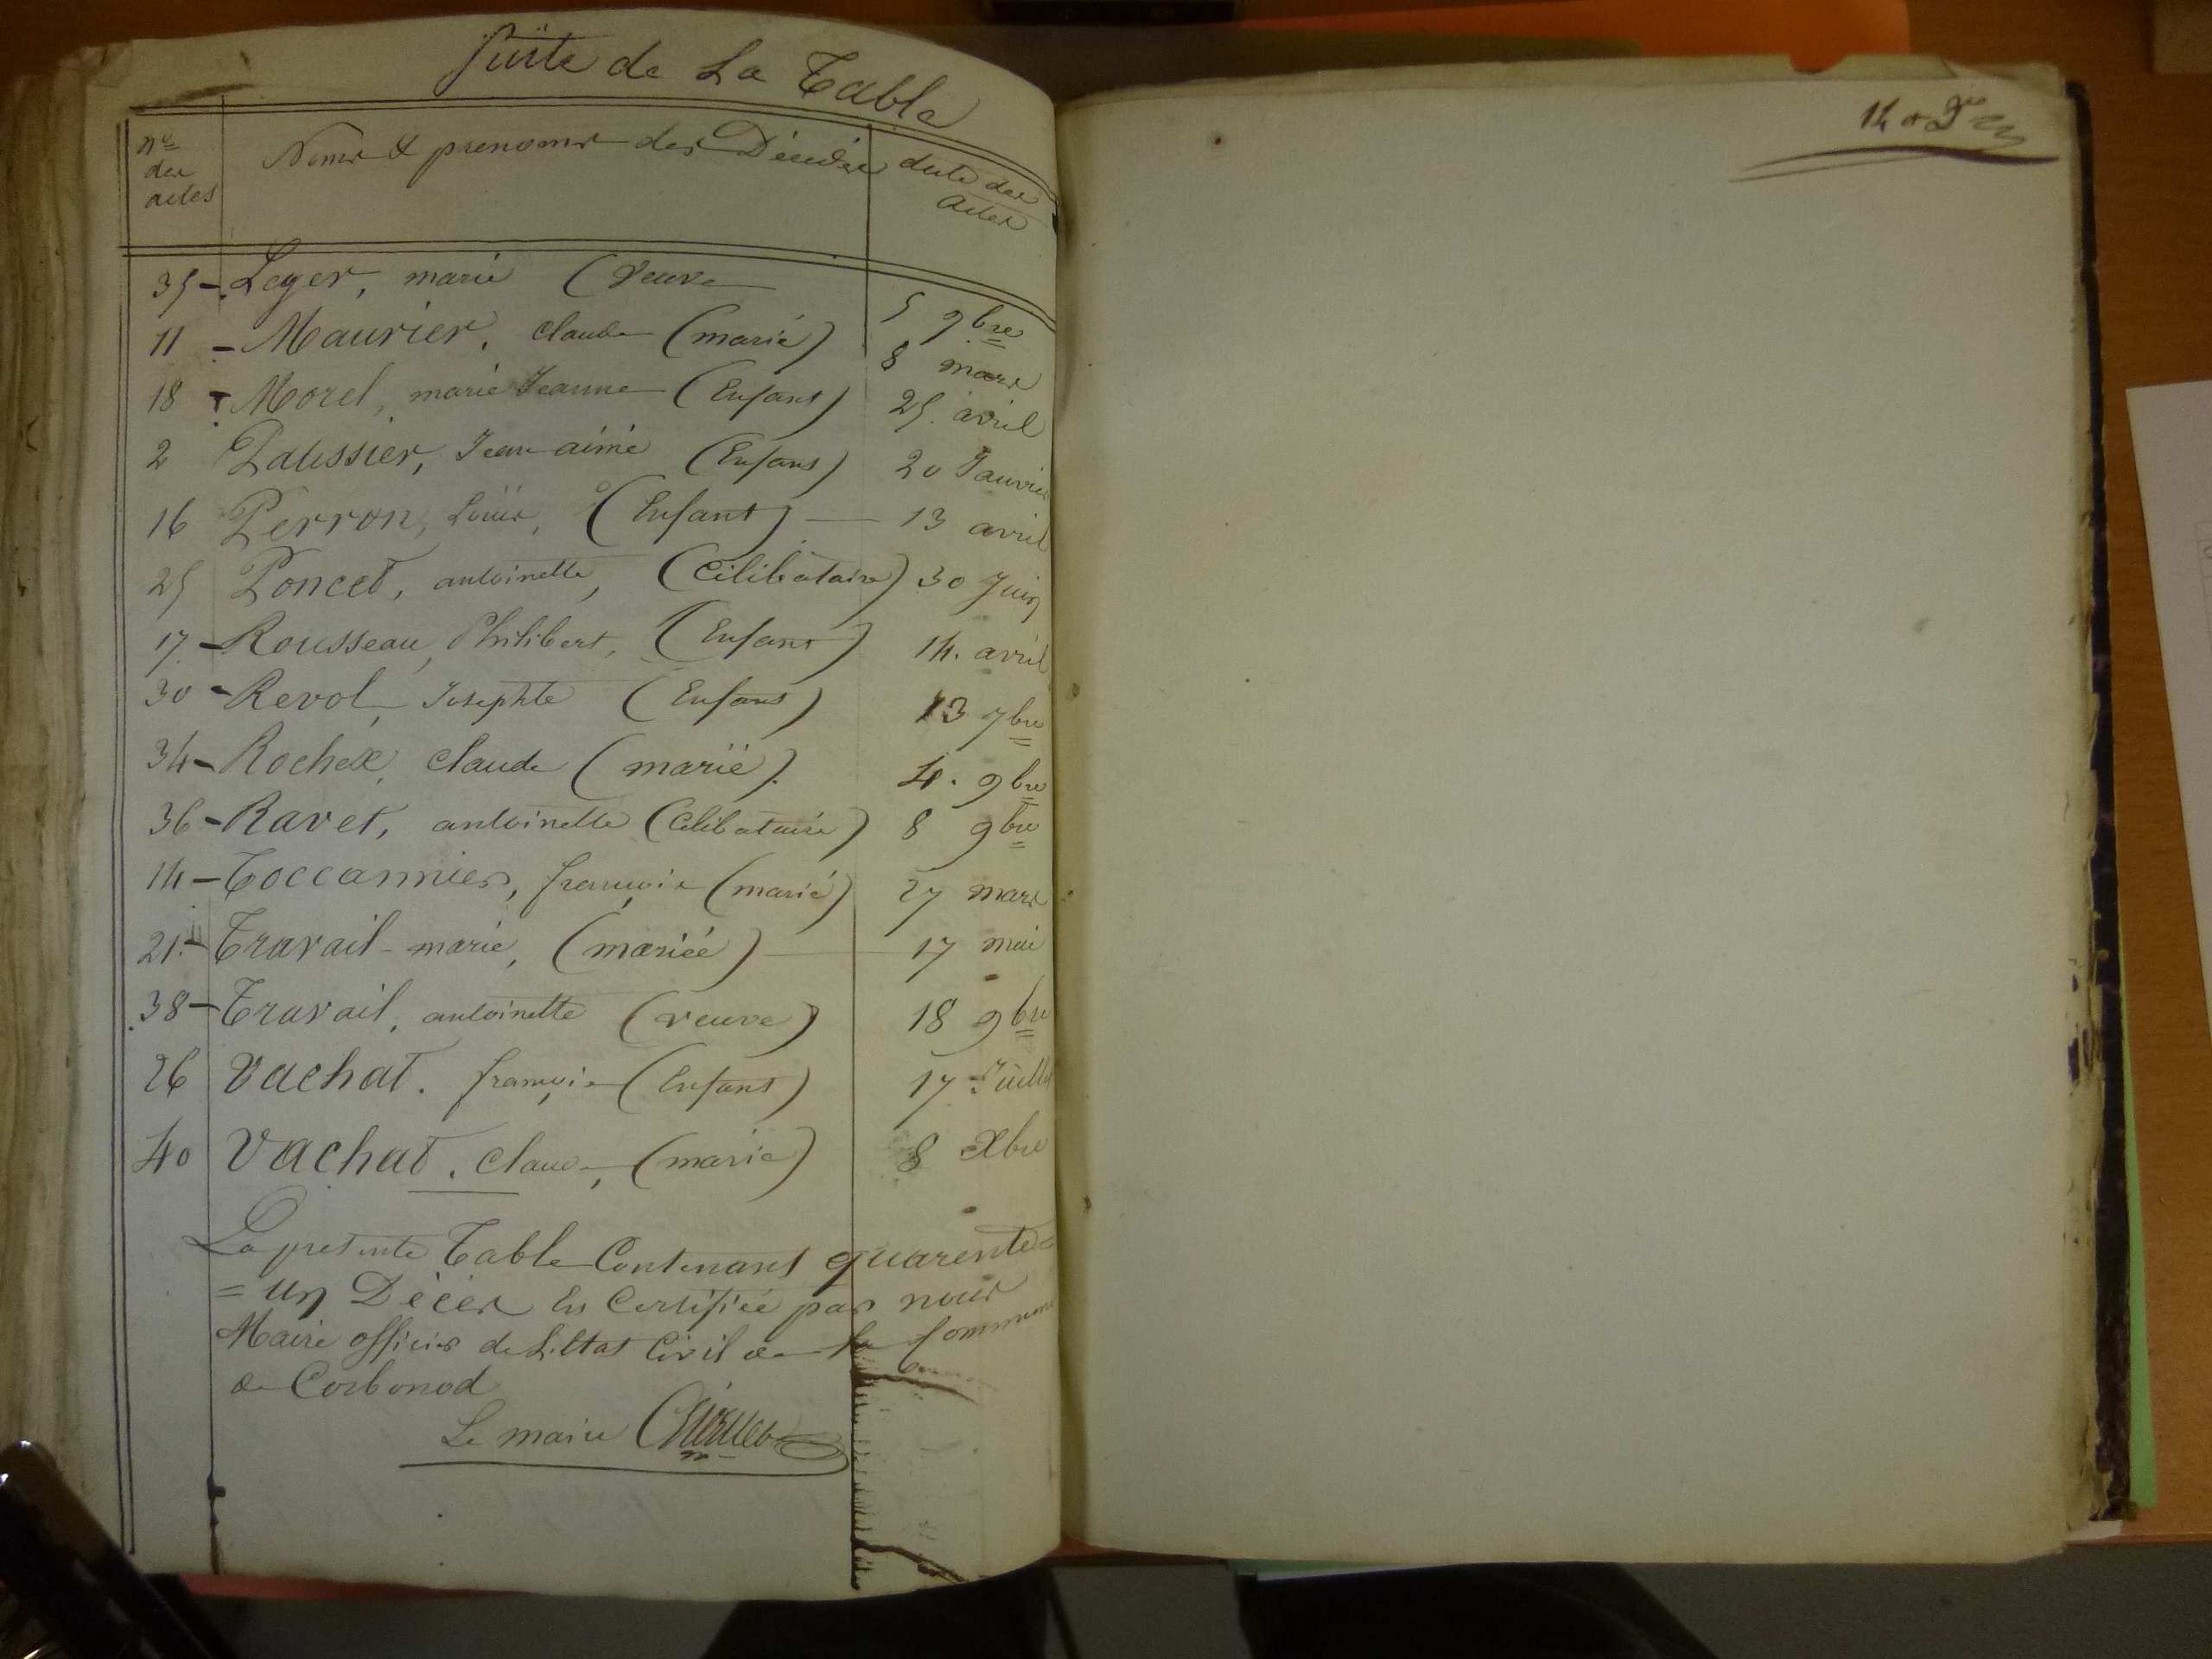 Suite de La Table
nos des actes
Noms & prenoms des Décédés
date des actes
35 - Leger, marie (veuve 5 9bre
11 - Maurier, Claude (marié) 8 mars
18 - Morel, marie Jeanne (Enfant) 25. avril
2 Paussier, Jean aimé (Enfant) 20 Janvier
16 Perron, Louis, (Enfant) 13 avril
25 Poncet, antoinette, (Célibataire) 30 Juin
17 - Rousseau, Philibert, (Enfant) 14. avril
30 - Revol, Josephte (Enfant) 13 7bre
34 - Rochex, Claude (marié). 4. 9bre
36 - Ravet, antoinette (Célibataire) 8 9bre
14 - Toccannier, françois (marié) 27 mars
21. - Travail - marie, (mariée) 17 mai
38 - Travail, antoinette (veuve) 18 9bre
26 Vachat. françois (Enfant) 17 Juillet
40 Vachat. Claude, (marié) 8 Xbre
La presente Table Contenant quarente =
= un Décès Est Certifiée par nous
Maire officier de L'Etat Civil de la Commune
de Corbonod
Le maire